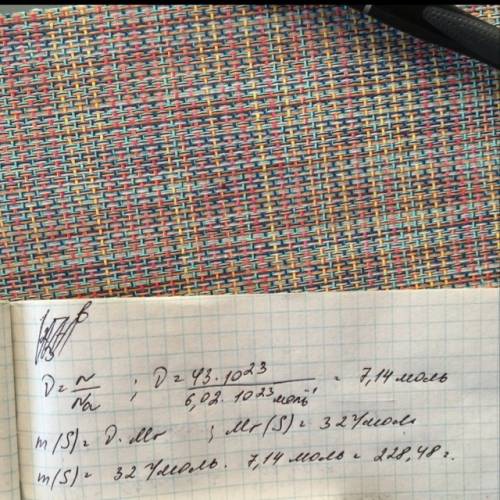 в
D = N/Na ; D = 43·10²³ / 6,02·10²³ моль⁻¹ = 7,14 моль
m(S) = D·Mr ; Mr(S) = 32 г/моль
m(S) = 32 г/моль · 7,14 моль = 228,48 г.